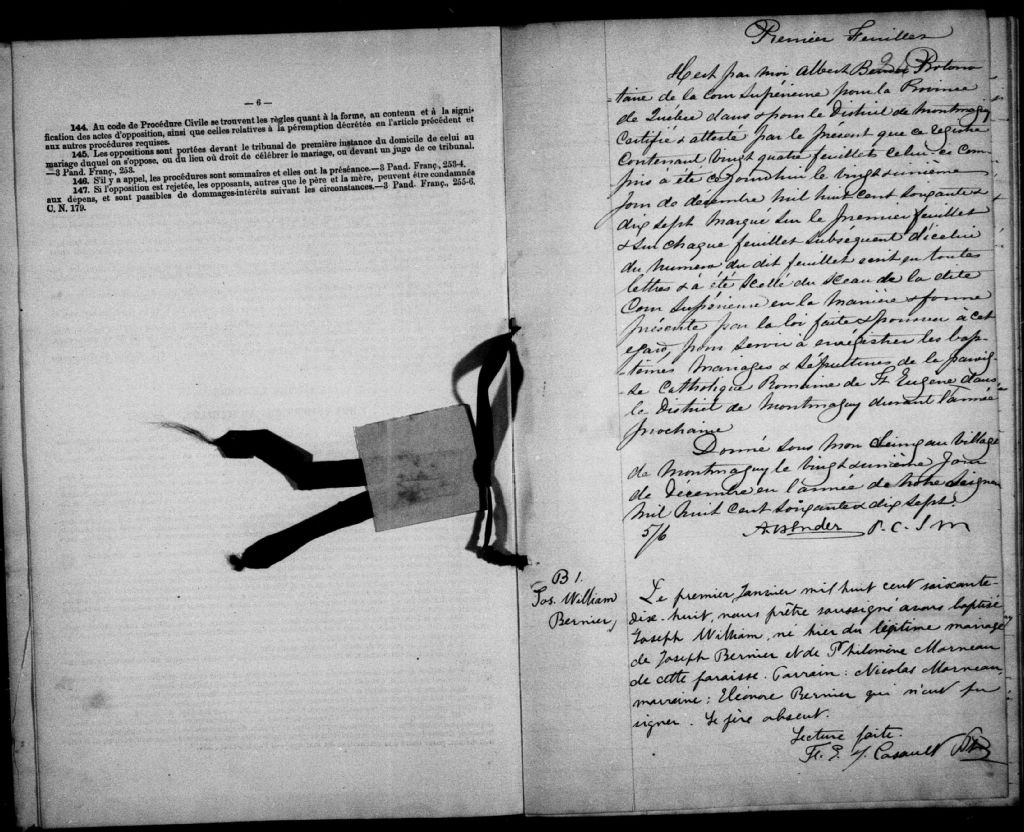 — 6 —
144. Au code de Procédure Civile se trouvent les règles quant à la forme, au contenu et à la signi-
fication des actes d'opposition, ainsi que celles relatives à la péremption décrétée en l'article précédent et
aux autres procédures requises.
145. Les oppositions sont portées devant le tribunal de première instance du domicile de celui au
mariage duquel on s'oppose, ou du lieu où droit de célébrer le mariage, ou devant un juge de ce tribunal.
—3 Pand. Franç., 253.
146. S'il y a appel, les procédures sont sommaires et elles ont la préséance.—3 Pand. Franç., 253-4.
147. Si l'opposition est rejetée, les opposants, autres que le père et la mère, peuvent être condamnés
aux dépens, et sont passibles de dommages-intérêts suivant les circonstances.—3 Pand. Franç., 255-6.
C. N. 179.
Premier Feuillet
Il est par moi Albert Bender Protono
-taire de la Cour Supérieure pour la Province
de Québec dans & pour le District de Montmagny
Certifié & attesté par le présent que ce registre
Contenant vingt quatre feuillets celui-ci com-
pris à été ce jourdhui le vingt & unième
jour de décembre mil huit cent soixante &
dix sept marqué sur le premier feuillet
& sur chaque feuillet subséquent d'icelui
du numero du dit feuillet écrit en toutes
lettres & à été scellé du sceau de la dite
Cour Supérieure en la manière & forme
présente par la loi faite & pourvue à cet
égard, pour servir à enrégistrer les bap-
têmes mariages & sépultures de la parois-
se Catholique Romaine de St Eugène dans
le District de Montmagny durant l'année
prochaine
Donné sous mon Seing au village
de Montmagny le vingt & unième jour
de Décembre en l'année de notre Seigneur
Mil huit cent soixante & dix sept.
576 A Bender P. C. S M
B 1.
Jos. William
Bernier
Le premier Janvier mil huit cent soixante-
dix-huit, nous prêtre soussigné avons baptisé
Joseph William, né hier du légitime mariage
de Joseph Bernier et de Philomène Morneau
de cette paroisse. Parrain: Nicolas Morneau,
marreine: Eléonore Bernier qui n'ont pu
signer. Le père absent.
Lecture faite.
Fr. E. J. Casault Ptre